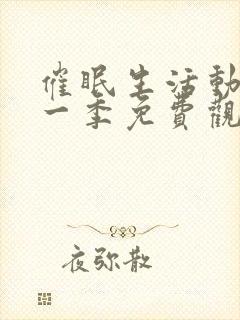 催眠生活動
一季免費觀
夜弥散